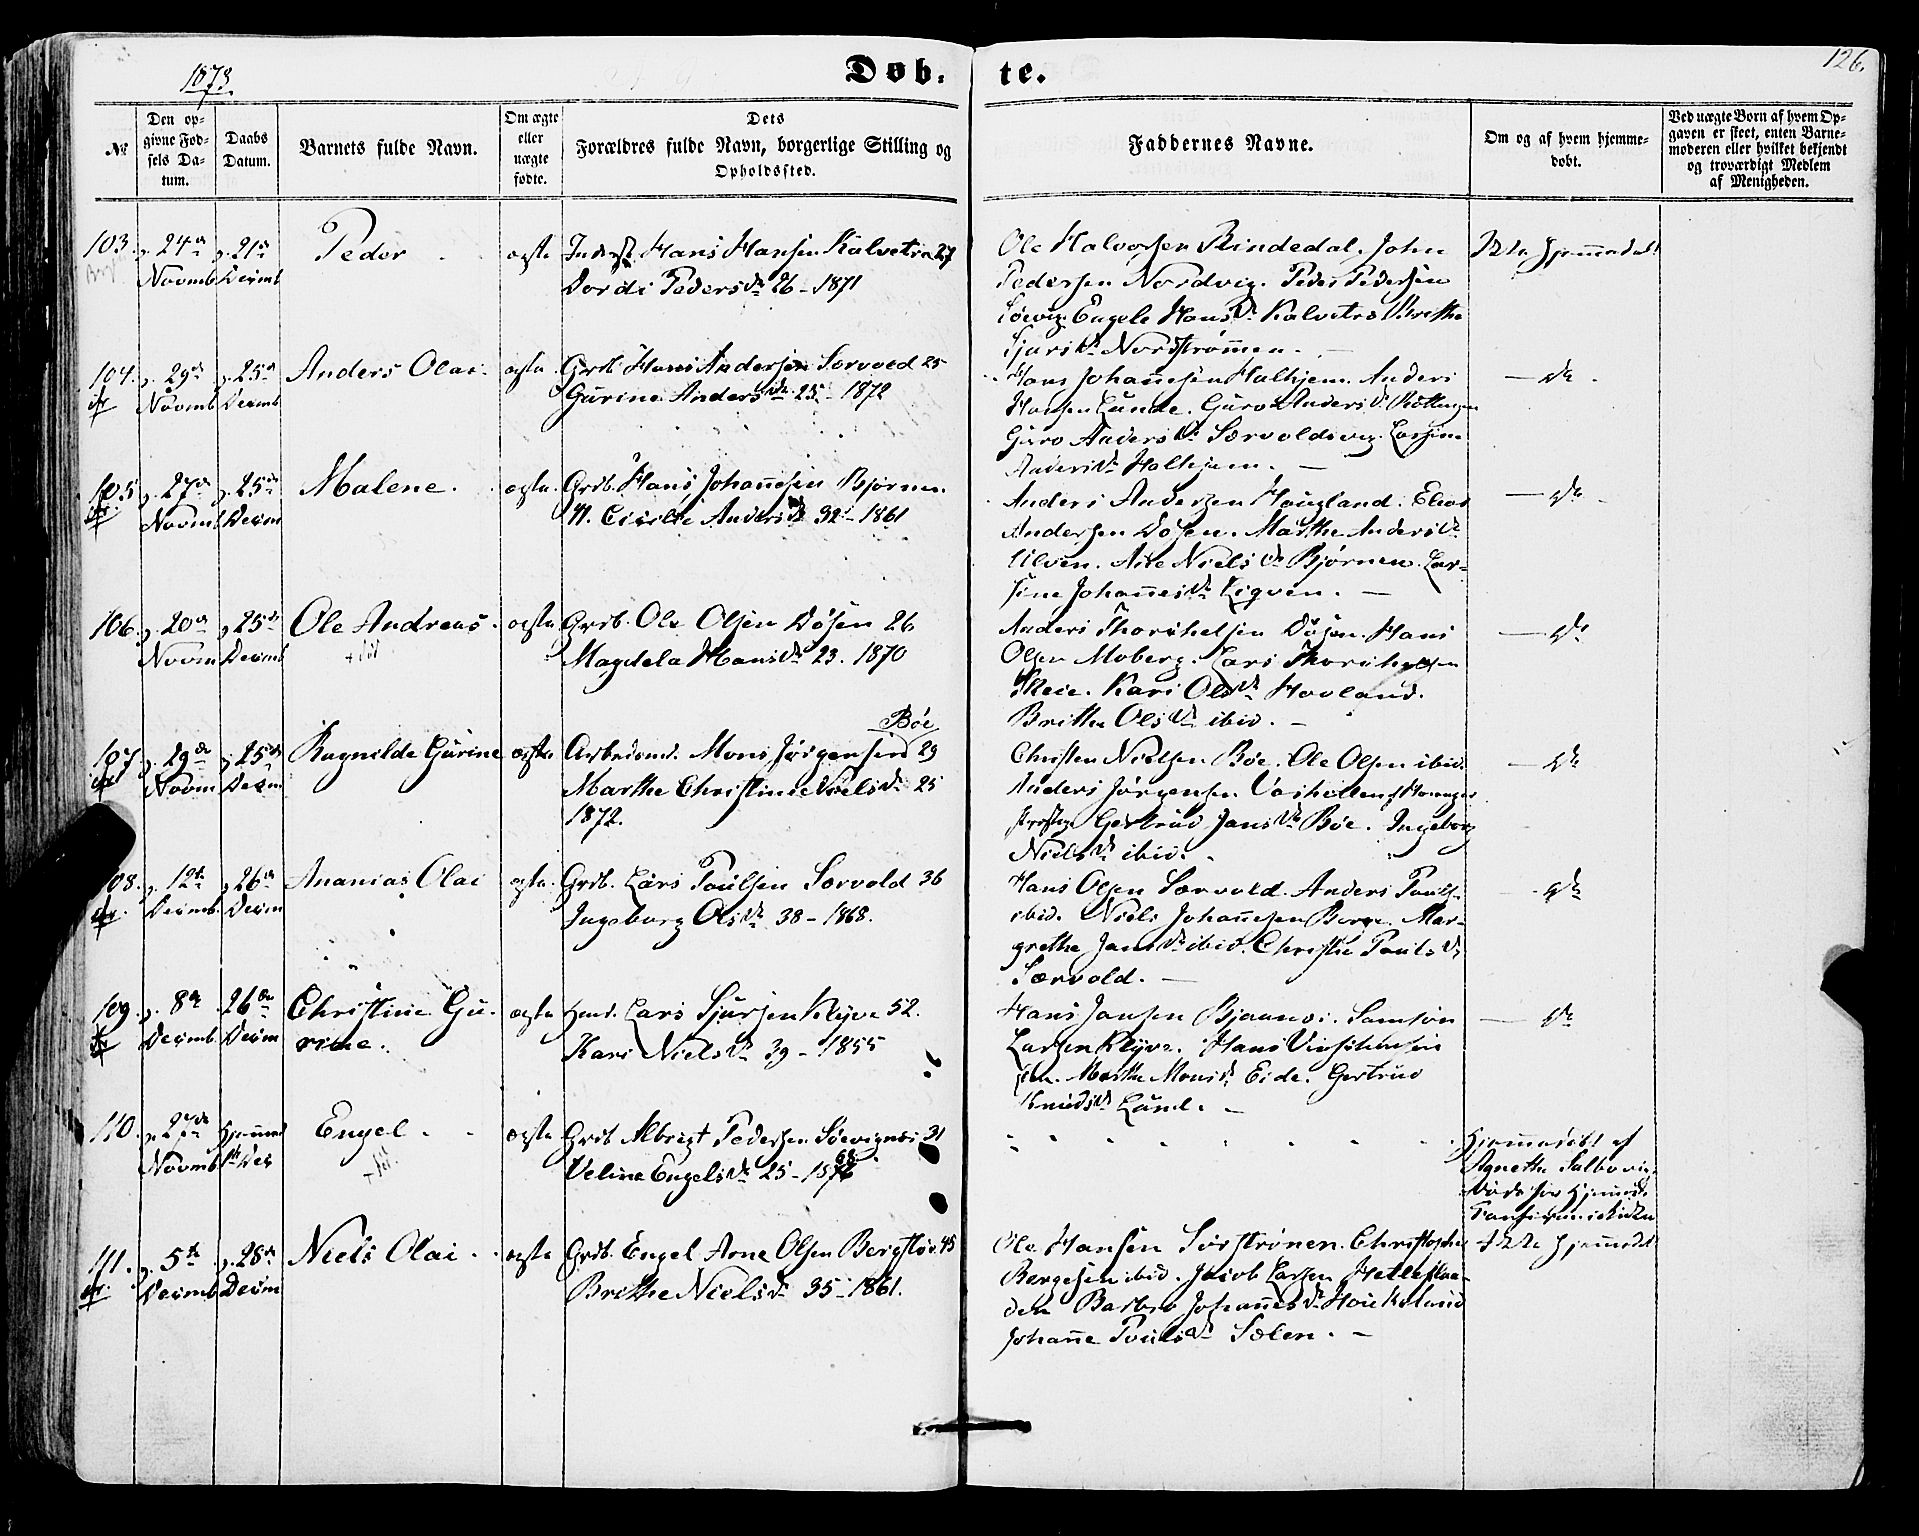 1873.
Døb. te.
126.
№
Den op-
givne Fød-
sels Da-
tum.
Daabs
Datum.
Barnets fulde Navn.
Om ægte
eller
uægte
fødte.
Dets
Forældres fulde Navn, borgerlige Stilling og
Opholdssted.
Faddernes Navne.
Om og af hvem hjemme-
døbt.
Ved uægte Børn af hvem Op-
gaven er skeet, enten Barne-
moderen eller hvilket bekjendt
og troværdigt Medlem
af Menigheden.
103. 24 21
Novmb Decmb
Peder
ægte
Hans Hansen Kalvetræ 27
Dordi Pedersdr 26 - 1871
Ole Halvorsen Rindedal. John
Pedersen Nordvig. Peder Pedersen
Søevig. Engele Hansdr Kalvetræ Brithe
Sjursdr Nordstrømmen.
Ikke hjemmedøbt
104. 29 25
Novmb Decmb
Anders Olai
ægte
Grdb. Hans Andersen Sørvold 25
Gurine Andersdr 25 - 1872
Hans Johannesen Halhjem. Anders
Hansen Lunde. Guro Andersdr
Guro Andersdr Særvoldsvig.
Andersdr Halhjem.
do
105 27 25
Novmb Decm
Malene
ægte
Grdb. Hans Johannesen Bjørnen
41. Cicilie Andersdr 32 - 1861
Anders Andersen Hougland.
Andersen Døsen. Marthe Andersdr
Ulven. Nielsdr Bjørnen. Lar-
sine Johannesdr
do
106. 20 25
Novm Decmb
Ole Andreas
+ død
ægte
Grdb. Ole Olsen Døsen 26
Magdela Hansdr 23. 1870
Anders Døsen. Hans
Olsen Moberg. Lars
Skeie. Kari Olsdr Hovland.
Brithe Olsdr ibid.
do
107 29 25
Novm Decm
Ragnilde Gurine
ægte
Bøe
Arbeidsmd. Mons Jørgensen 29
Marthe Christine Nielsdr 25
1872.
Christen Nielsen Bøe. Ole Olsen ibid.
Anders Jørgensen
Gertrud Jansdr Bøe. Ingeborg
Nielsdr ibid.
do
108. 12 26
Decmb Decm
Ananias Olai
ægte
Grdb. Lars Poulsen Sørvold 36
Ingeborg Olsdr 38 - 1868.
Hans Olsen Særvold. Anders Pouls.
ibid. Niels Johannesen Berge. Mar-
grethe Jansdr ibid. Christie Poulsdr
Særvold.
do
109. 8 26
Decmb Decm
Christine Gu-
rine.
ægte
Lars Sjursen Klyve 52.
Kari Nielsdr 39 - 1855
Hans Jansen Bjaanæs. Samson
Larsen Klyve. Hans
Marthe Monsdr Eide. Gertrud
Knudsdr Lund.
do
110. 27
Novmb
Engel
+ død.
ægte
Grdb Albrigt Pedersen Søevignæs 31
Velina Engelsdr 25 - 1868
Hjemmedøbt af
Agnethe
Døde før
111. 5 28
Decmb Decm
Niels Olai
ægte
Grdb. Engel Arne Olsen Bergstø 45
Brithe Nielsdr 35 - 1861.
Ole Hansen Sørstrønen. Christopher
Børgesen ibid. Jacob Larsen Hetlefla-
den Barbro Johannesdr
Johanne Poulsdr Sælen.
Ikke hjemmedøbt